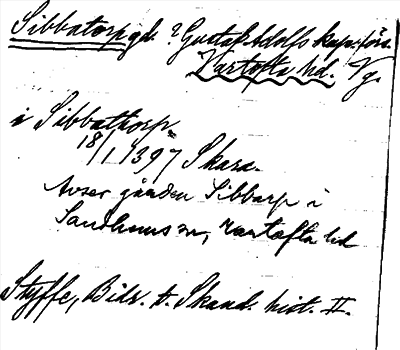 Sibbatorp gd. ? Gustaf Adolfs kap. förs.
Vartofta hd. Vg.
i Sibbathorp
18/1 1397 Skara.
Avser gården Sibbarp i
Sandhems sn, Vartofta hd
Styffe, Bidr. t. Skand. hist. II.